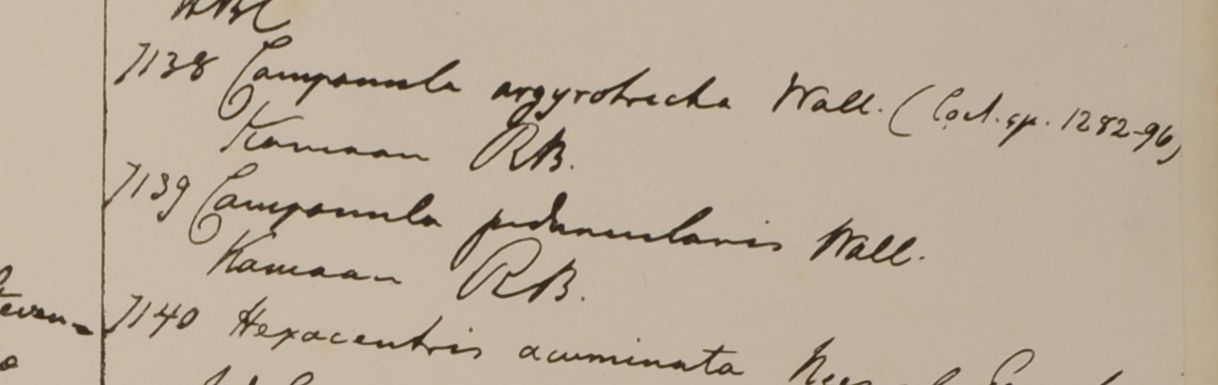 7138 Campanula argyrotricha Wall. (Cat. sp. 1282-96)
Kamaon RB.
7139 Campanula peduncularis Wall.
Kamaon RB.
7140 Hexacentris acuminata Nees